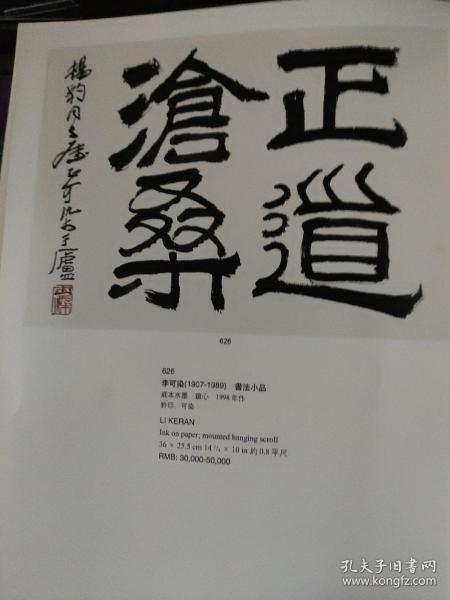 正道
滄桑
可染
626
626
李可染(1907-1989) 書法小品
紙本水墨 鏡心 1998年作
鈐印：可染
LI KERAN
Ink on paper; mounted hanging scroll
36 × 25.5 cm 14 1/4 × 10 in 約 0.8 平尺
RMB: 30,000-50,000
孔夫子旧书网
www.kongfz.com